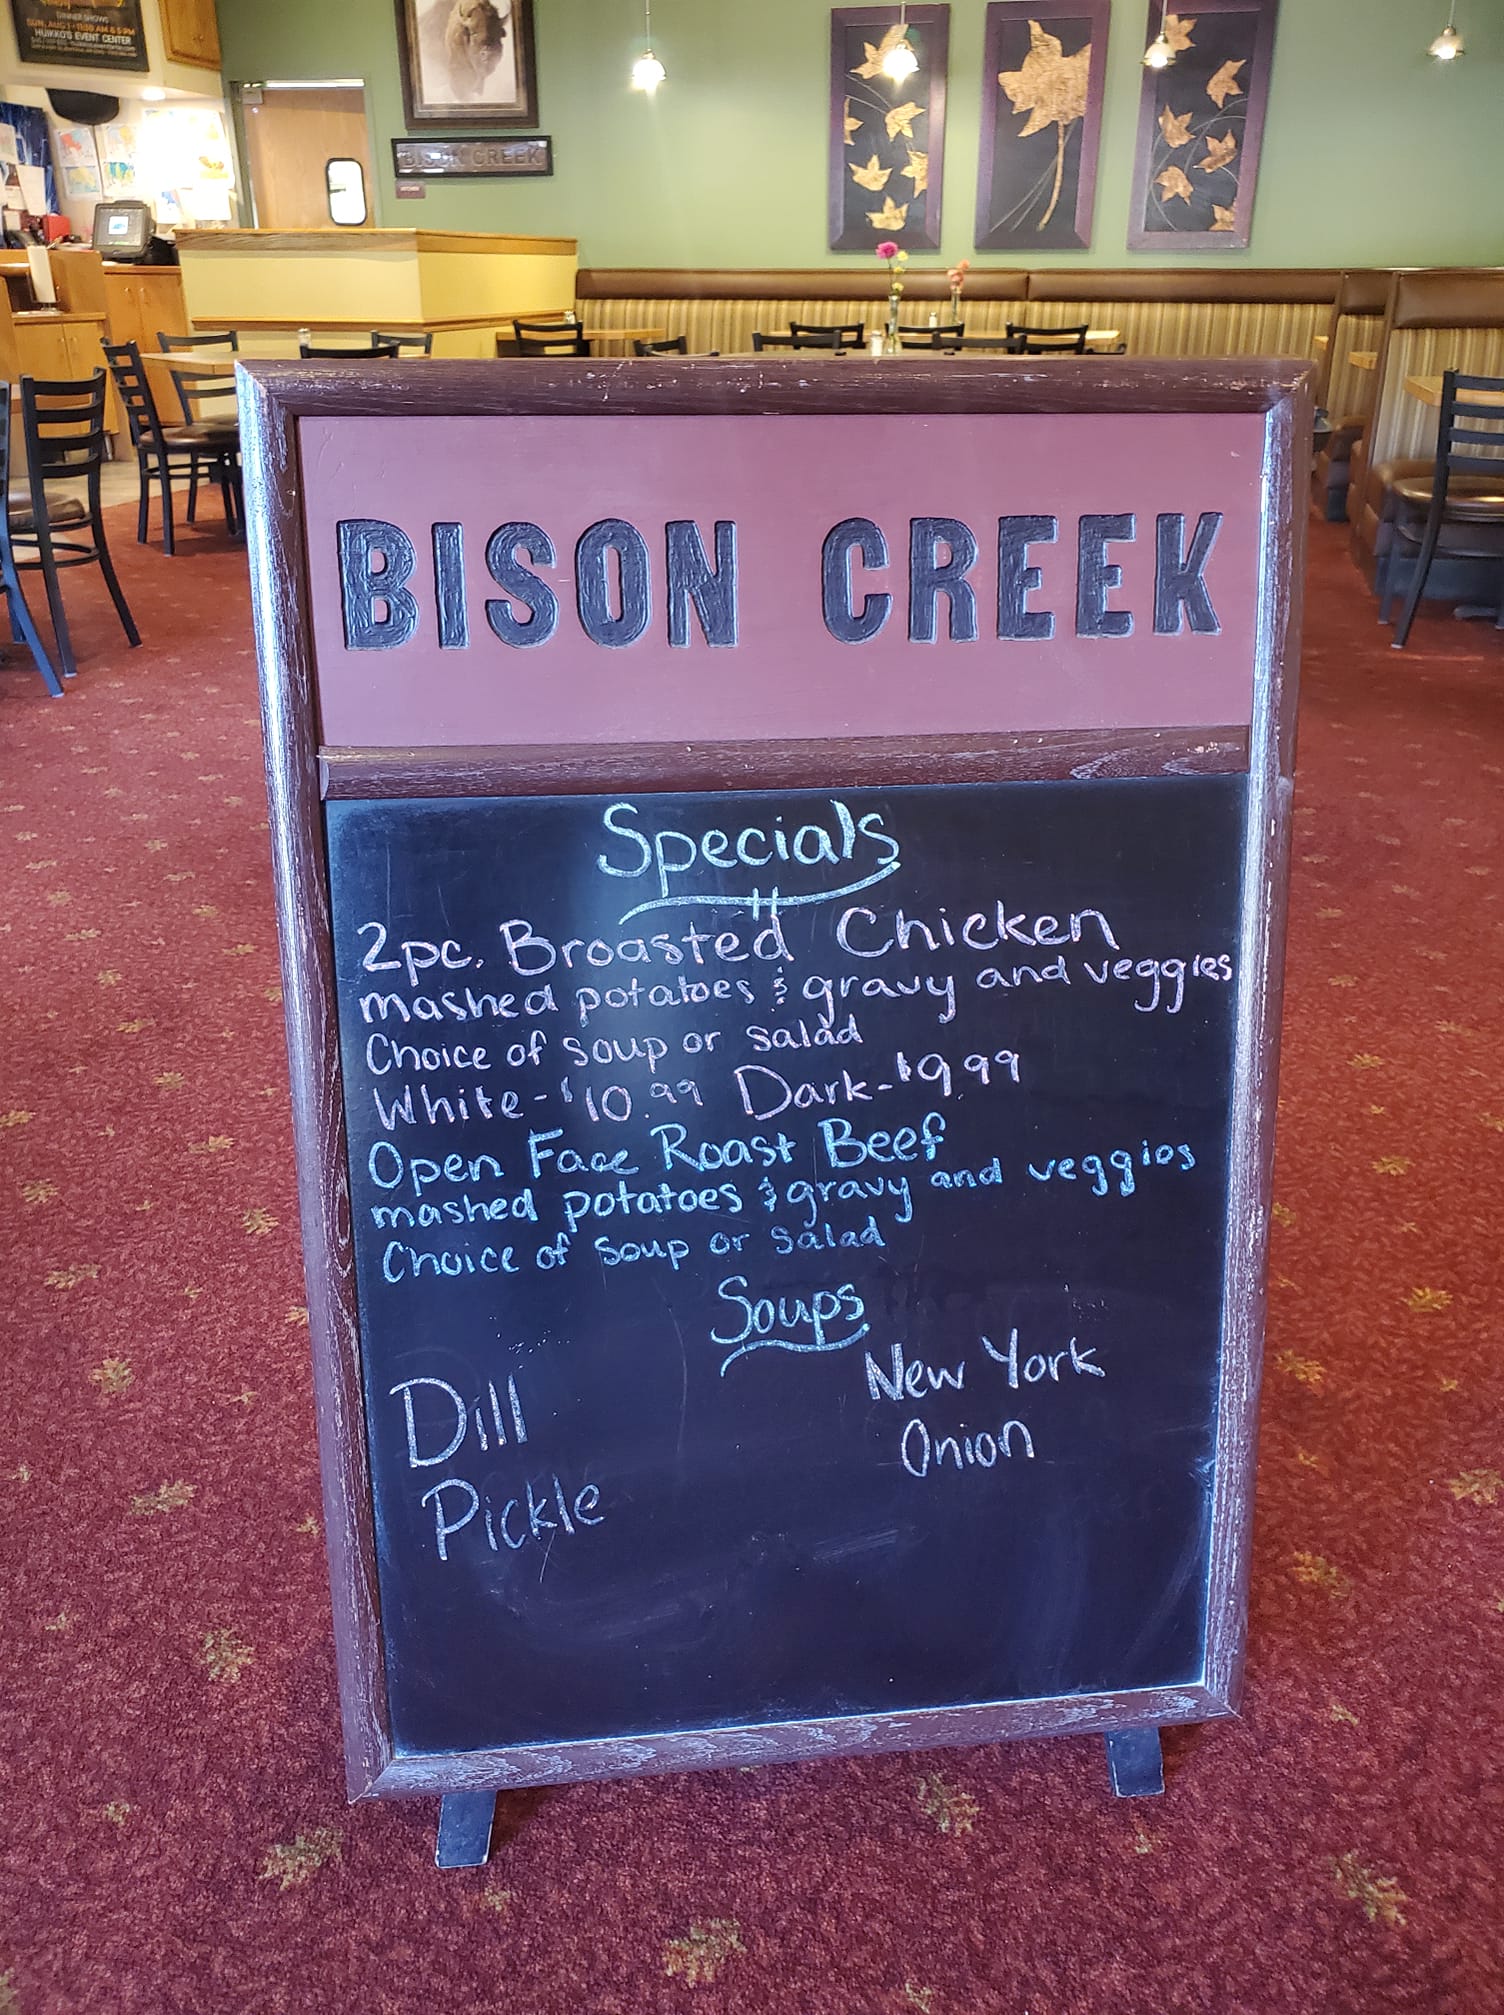 DINNER SHOWS
SUN, AUG 1 - 11:30 AM & 5 PM
HUIKKO'S EVENT CENTER
BISON CREEK
KITCHEN
BISON CREEK
Specials
2pc. Broasted Chicken
mashed potatoes & gravy and veggies
Choice of soup or salad
White-$10.99 Dark-$9.99
Open Face Roast Beef
mashed potatoes & gravy and veggies
Choice of soup or salad
Soups
Dill
Pickle
New York
Onion